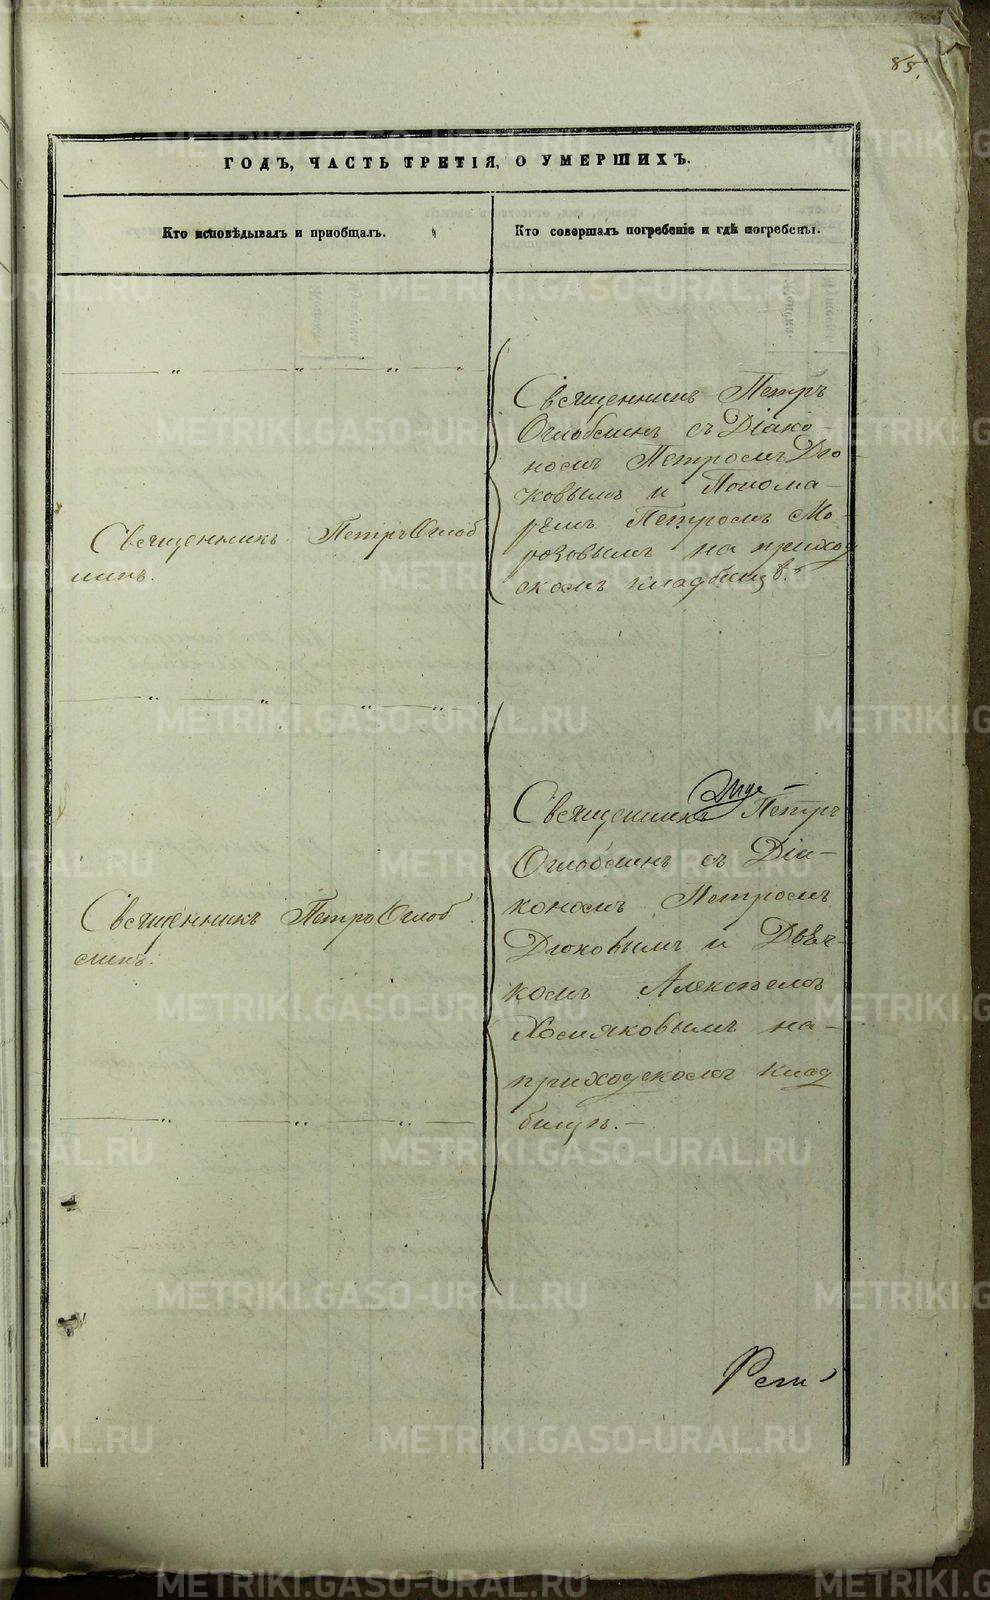 85.
ГОДЪ, ЧАСТЬ ТРЕТІЯ, О УМЕРШИХЪ.
Кто исповѣдывалъ и приобщалъ.
Кто совершалъ погребеніе и гдѣ погребены.
Священникъ Петръ
Оглоблинъ съ Діако-
номъ Петромъ Дю-
ковымъ и Понома-
ремъ Петромъ Мо-
розовымъ на приход
скомъ кладбищѣ.
Священникъ Петръ Оглоб
линъ.
Священникъ Петръ
Оглоблинъ съ Діа-
кономъ Петромъ
Дюковымъ и Дьяч-
комъ Алексѣемъ
Хомяковымъ на-
приходскомъ клад
бищѣ.-
Священникъ Петръ Оглоб
линъ.
METRIKI.GASO-URAL.RU